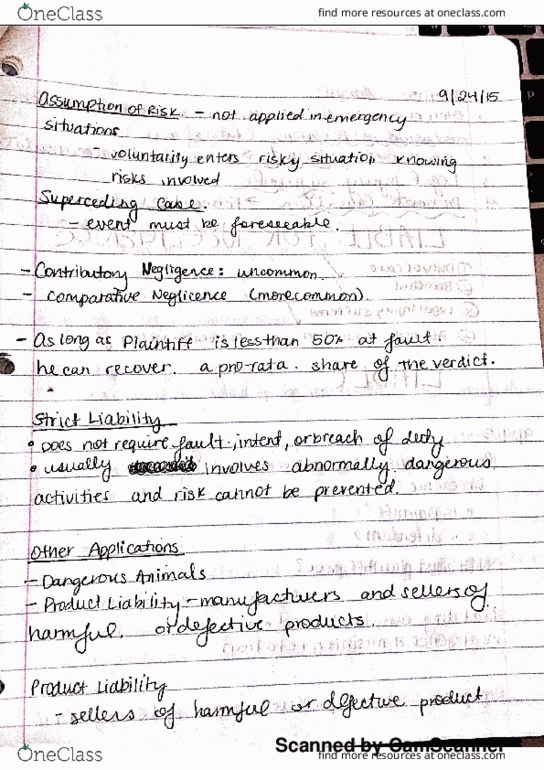 OneClass
find more resources at oneclass.com
9/24/15
Assumption of Risk - not applied in emergency
situations
- voluntarily enters risky situation knowing
risks involved
Superceding Case
- event must be foreseeable.
- Contributory Negligence: uncommon.
- comparative Neglicence (more common).
- As long as Plaintiff is less than 50% at fault.
he can recover. a pro-rata. share of the verdict.
Strict Liability
• Does not require fault, intent, or breach of duty
• usually involves abnormally dangerous
activities and risk cannot be prevented.
Other Applications
- Dangerous Animals
- Product Liability - manufacturers and sellers of
harmful. or defective products.
Product Liability
- sellers of harmful or defective product
Scanned by CamScanner
OneClass
find more resources at oneclass.com